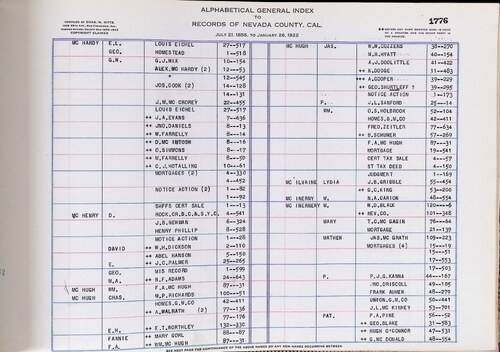 ALPHABETICAL GENERAL INDEX
TO
RECORDS OF NEVADA COUNTY, CAL.
JULY 21, 1856, TO JANUARY 26, 1922
1776
COPYRIGHT CLAIMED
MC HARDY E.L. LOUIS EICHEL 27—517
GEO. HOMESTEAD 1—518
G.W. G.J.NIX 10—154
ALEX.MC HARDY (2) 12—553
" 12—545
JOS.COOK (2) 14—128
14—131
J.M.MC CROREY 22—455
LOUIS EICHEL 27—517
++ J.A.EVANS 7—636
++ JNO.DANIELS 8—13
++ W.FARRELLY 8—14
++ D.MC INTOSH 8—16
++ O.SIMMONS 8—17
++ W.FARRELLY 8—50
++ C.J.HOTALING 10—61
MORTGAGES (2) 4—330
4—452
NOTICE ACTION (2) 1—82
1—92
SHFFS CERT SALE 1—13
MC HENRY D. HOCK,CR,B,C,A,S,Y,C. 4—541
J.B.NEWMAN 6—324
HENRY PHILLIP 8—528
NOTICE ACTION 1—28
DAVID ++ W.H.DICKSON 2—110
++ ABEL HANSON 5—150
E. ++ J.C.PALMER 25—265
GEO. MIS RECORD 1—599
M.A. ++ B.F.ADAMS 24—643
MC HUGH WM. F.A.MC HUGH 87—31
MC HUGH CHAS. M.P.RICHARDS 100—51
HOMES.G.M.CO 42—411
++ A.WALRATH (2) 77—136
77—176
E.H. ++ E.T.WORTHLEY 132—330
FANNIE ++ MARY GORL 88—87
F.A. ++ WM.MC HUGH 87—31
MC HUGH JAS. W.W.COZZENS 38—270
M.R.HYATT 40—154
A.J.DOOLITTLE 41—422
++ N.DODGE 31—483
++ A.COOPER 39—229
++ GEO.SHURTLEFF ? 39—295
NOTICE ACTION 1—173
P. J.L.SANFORD 25—114
WM. O.S.HOLBROOK 52—104
HOMES.G.M.CO 42—411
FRED.ZEITLER 77—634
++ B.SCHUMER 57—269
F.A.MC HUGH 87—31
MORTGAGE 19—541
CERT TAX SALE 4—57
ST TAX DEED 4—150
JUDGMENT 1—169
MC ILVAINE LYDIA J.B.GRIBBLE 55—454
++ G.C.KING 53—200
MC INERNY M. N.A.GARION 48—554
MC INERNERY M. W.D.BLACK 120—6
++ NEV.CO. 101—348
MARY T.C.MC GAGIN 76—64
MORTGAGE 21—139
MATHEW JAS.MC GRATH 109—223
MORTGAGES (4) 15—19
15—51
17—553
17—503
P. P.J.G.KANNA 44—167
JNO.DRISCOLL 49—105
FRANK AUMER 48—279
UNION.G.M.CO 50—441
J.L.MC KINNEY 53—701
PAT. F.A.PINE 56—52
++ GEO.BLAKE 31—583
++ HUGH O'CONNOR 47—531
++ G.MC DONALD 48—554